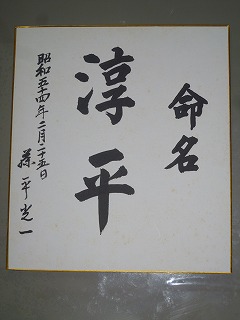 命名
淳平
昭和五十四年二月二十五日
藤平光一